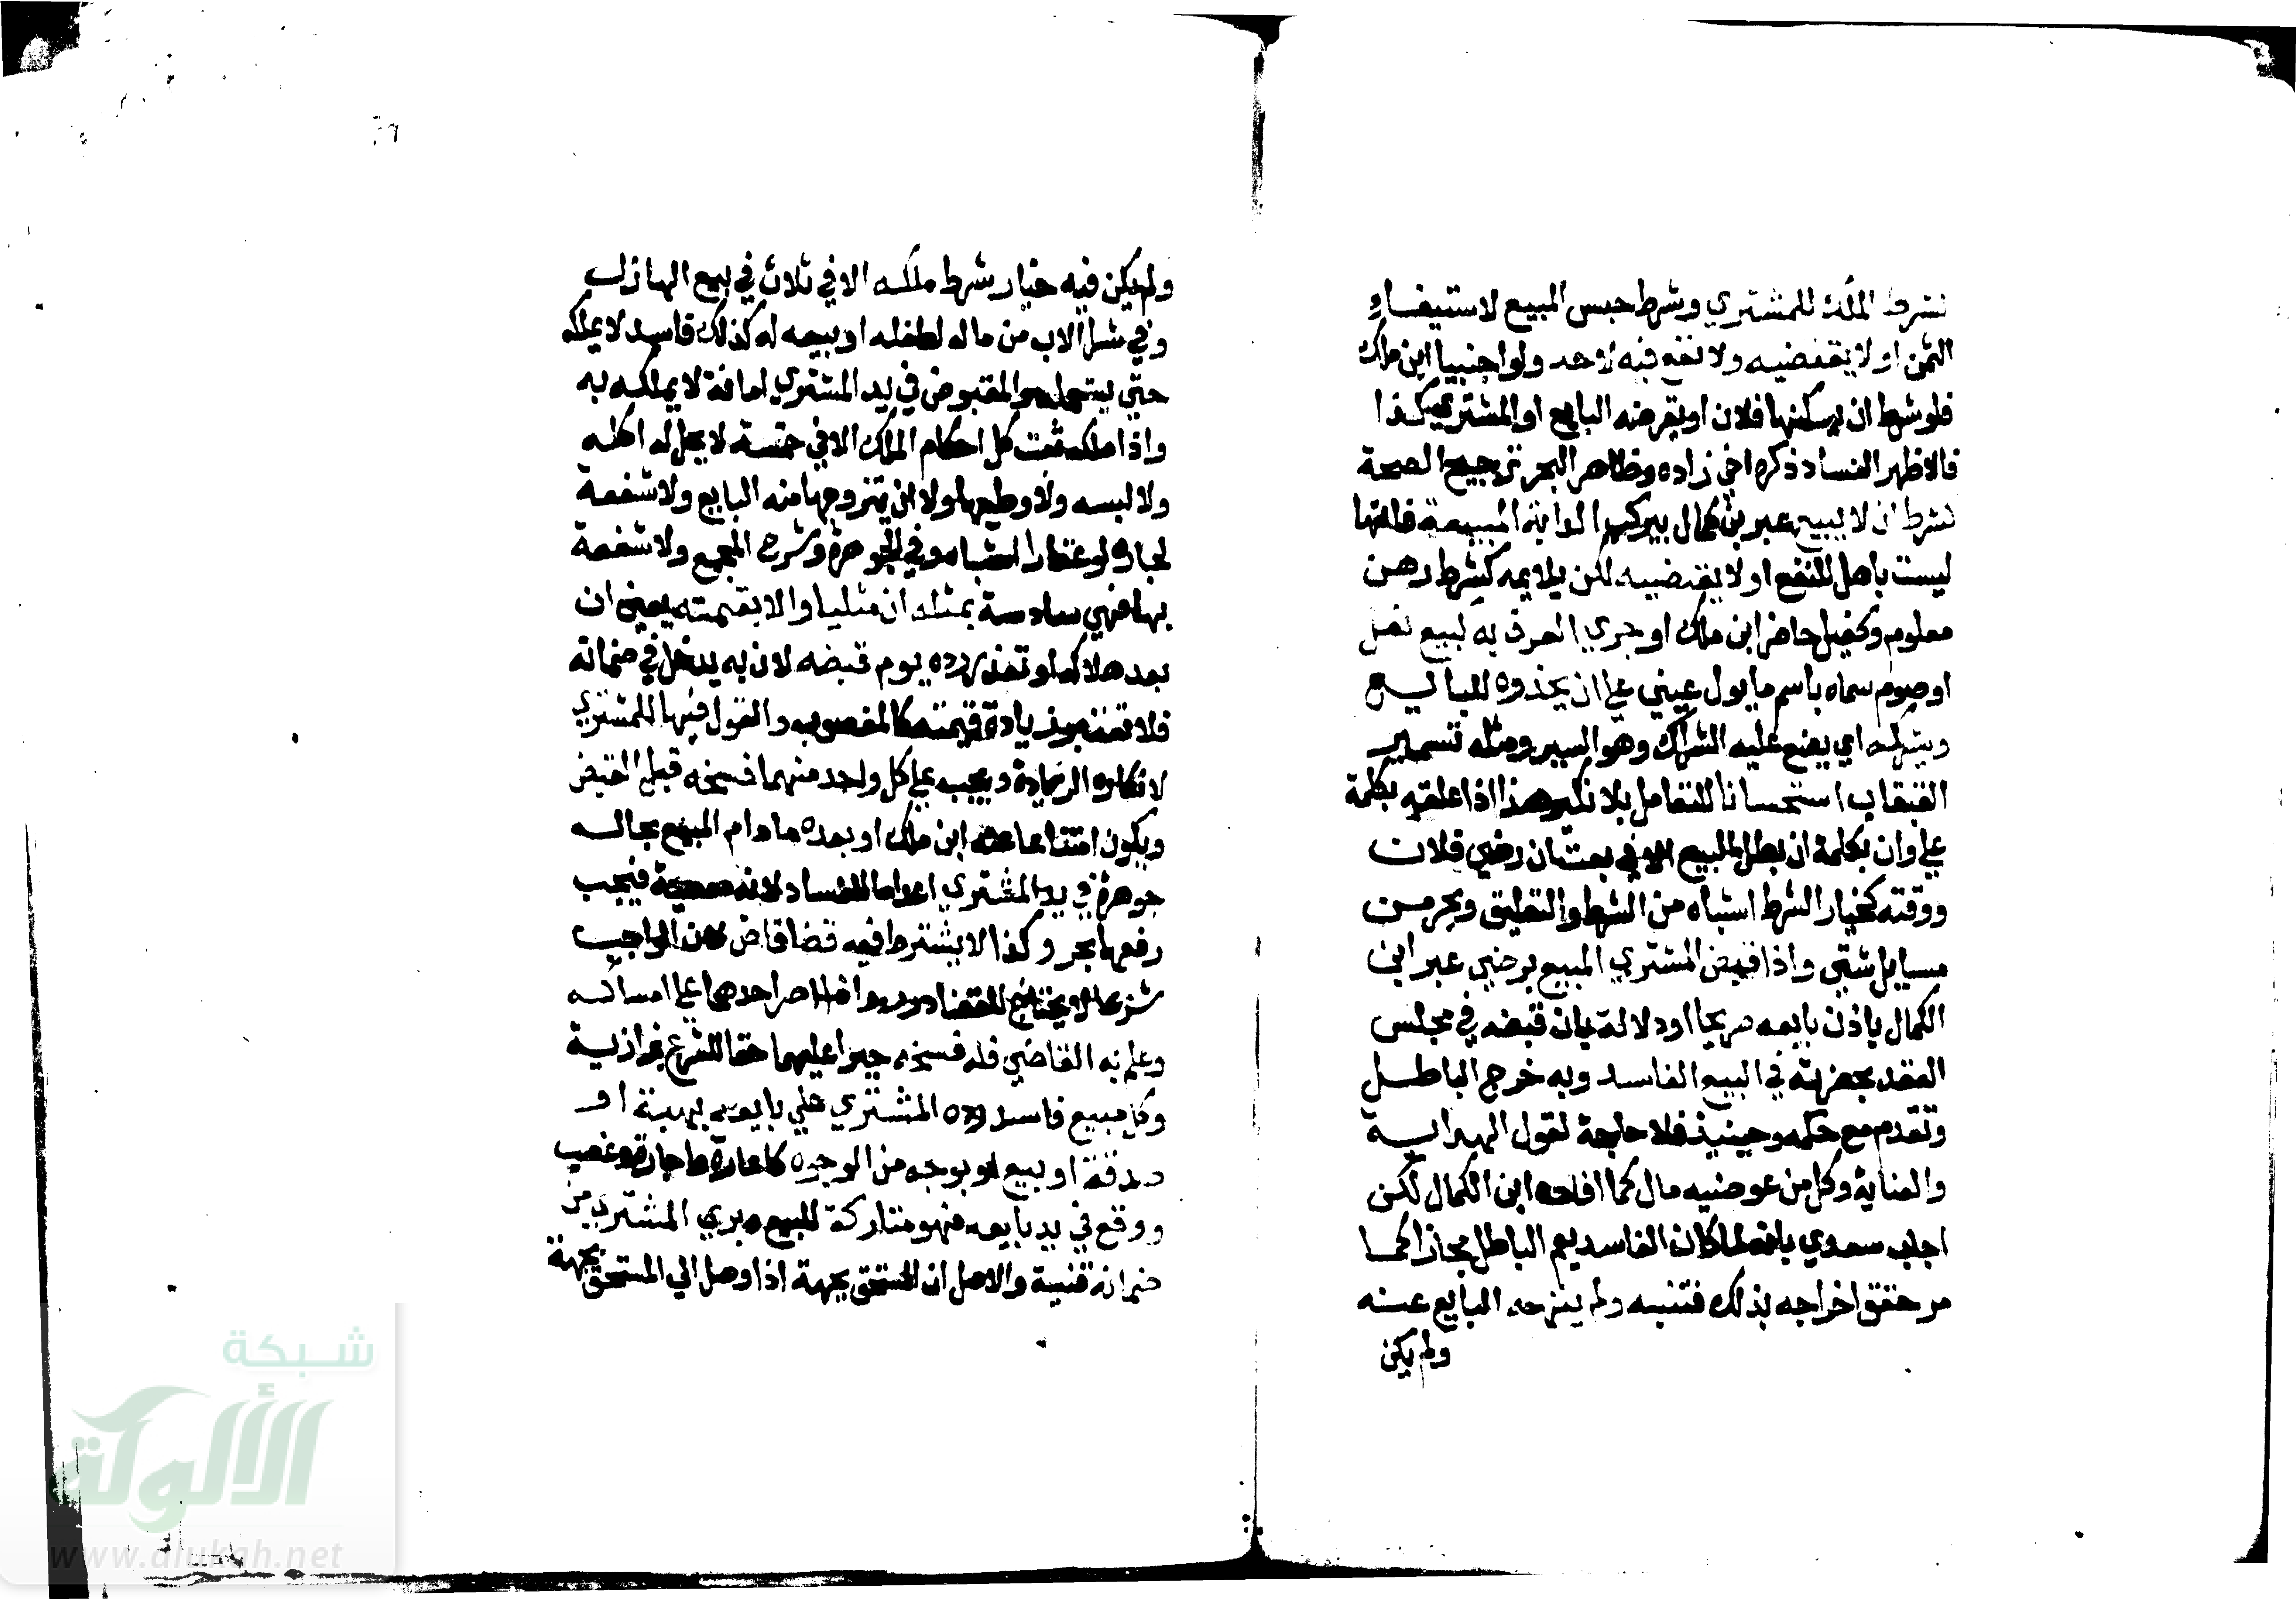 كشرط الملك للمشتري وشرط حبس المبيع لاستيفاء
الثمن او لا يقتضيه ولا نفع فيه لاحد ولو اجنبيا ابن ملك
فلو شرط ان يسكنها فلان او يقرضه البايع او المشتري كذا
فالاظهر الفساد ذكره اخي زاده وظاهر البحر ترجيح الصحة
كشرط ان لا يبيع عبر ابن كمال بيركب الدابة المبيعة فانها
ليست باهل للنفع او لا يقتضيه لكن يلايمه كشرط رهن
معلوم وكفيل حاضر ابن ملك او جري العرف به كبيع نعل
او صرم سماه باسم ما يول عيني علي ان يحذوه للبايع
ويشركه اي يضع عليه الشراك وهو السير ومثله تسمير
القبقاب استحسانا للتعامل بلا نكير هذا اذا علقه بكلمة
علي وان بكلمة ان بطل المبيع الا في بعت ان رضي فلان
ووقته كخيار الشرط اشباه من الشرط والتعليق وبحر من
مسايل شتي واذا قبض المشتري المبيع برضي عبر ابن
الكمال باذن بايعه صريحا او دلالة بان قبضه في مجلس
العقد بحضرته في البيع الفاسد وبه خرج الباطل
وتقدم مع حكمه وحينيذ فلا حاجة لقول الهداية
والعناية وكل من عوضيه مال كما افاده ابن الكمال لكن
اجاب سعدي بانه لما كان الفاسد يعم الباطل مجازا كما
مر حقق اخراجه بذلك فتنبه ولم ينهه البايع عنه
ولم يكن
ولم يكن فيه خيار شرط ملكه الا في ثلاث في بيع الهازل
وفي شرا الاب من ماله لطفله او بيعه له كذلك فاسد لا يملكه
حتي يستعمله والمقبوض في يد المشتري امانة لا يملكه به
واذا ملكه ثبت كل احكام الملك الا في خمسة لا يحل له اكله
ولا لبسه ولا وطيها ولا ان يتزوجها منه البايع ولا شفعة
لجاره لو عقارا اشباه وفي الجوهرة وشرح المجمع ولا شفعة
بها فهي سادسة بمثله ان مثليا والا بقيمته يعني ان
بعد هلاكه او تعذر رده يوم قبضه لان به يدخل في ضمانه
فلا تعتبر زيادة قيمته كالمغصوب والقول فيها للمشتري
لانكاره الزيادة ويجب علي كل واحد منهما فسخه قبل القبض
ويكون امتناعا عنه ابن ملك او بعده ما دام المبيع بحاله
جوهرة في يد المشتري اعداما للفساد لانه معصية فيجب
رفعها بحر وكذا لا يشترط فيه قضا قاض لان الواجب
شرعا لا يحتاج للقضا درر واذا اصر احدهما علي امساكه
وعلم به القاضي فله فسخه جبرا عليهما حقا للشرع بزازية
وكل مبيع فاسد رده المشتري علي بايعه بهبة او
صدقة او بيع او بوجه من الوجوه كاعارة واجارة وغصب
ووقع في يد بايعه فهو متاركة للبيع وبري المشتري من
ضمانه قنية والاصل ان المستحق بجهة اذا وصل الي المستحق بجهة
شبكة
الألوكة
www.alukah.net